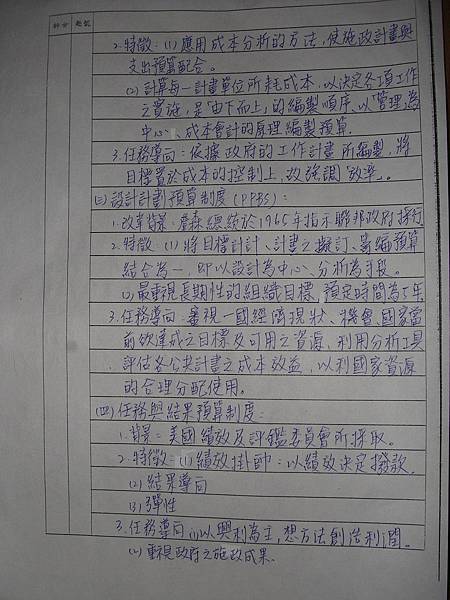 評分 題號
2.特徵:(1)應用成本分析的方法,使施政計畫與
支出預算配合。
(2)計算每一計畫單位所耗成本,以決定各項工作
之實施,是「由下而上」的編製順序、以「管理」為
中心、成本會計的原理編製預算。
3.任務導向:依據政府的工作計畫所編製,將
目標置於成本的控制上,故強調「效率」。
(三)設計計劃預算制度(PPBS):
1.改革背景:詹森總統於1965年指示聯邦政府採行
2.特徵:(1)將目標設計、計畫之擬訂、籌編預算
結合為一,即以設計為中心、分析為手段。
(2)最重視長期性的組織目標,預定時間為5年
3.任務導向:審視一國經濟現狀、機會、國家當
前欲達成之目標及可用之資源,利用分析工具
評估各公共計畫之成本效益,以利國家資源
的合理分配使用。
(四)任務與結果預算制度:
1.背景:美國績效及評鑑委員會所採取。
2.特徵:(1)績效掛帥:以績效決定撥款
(2)結果導向
(3)彈性
3.任務導向:(1)以興利為主,想方法創造利潤。
(2)重視政府之施政成果。